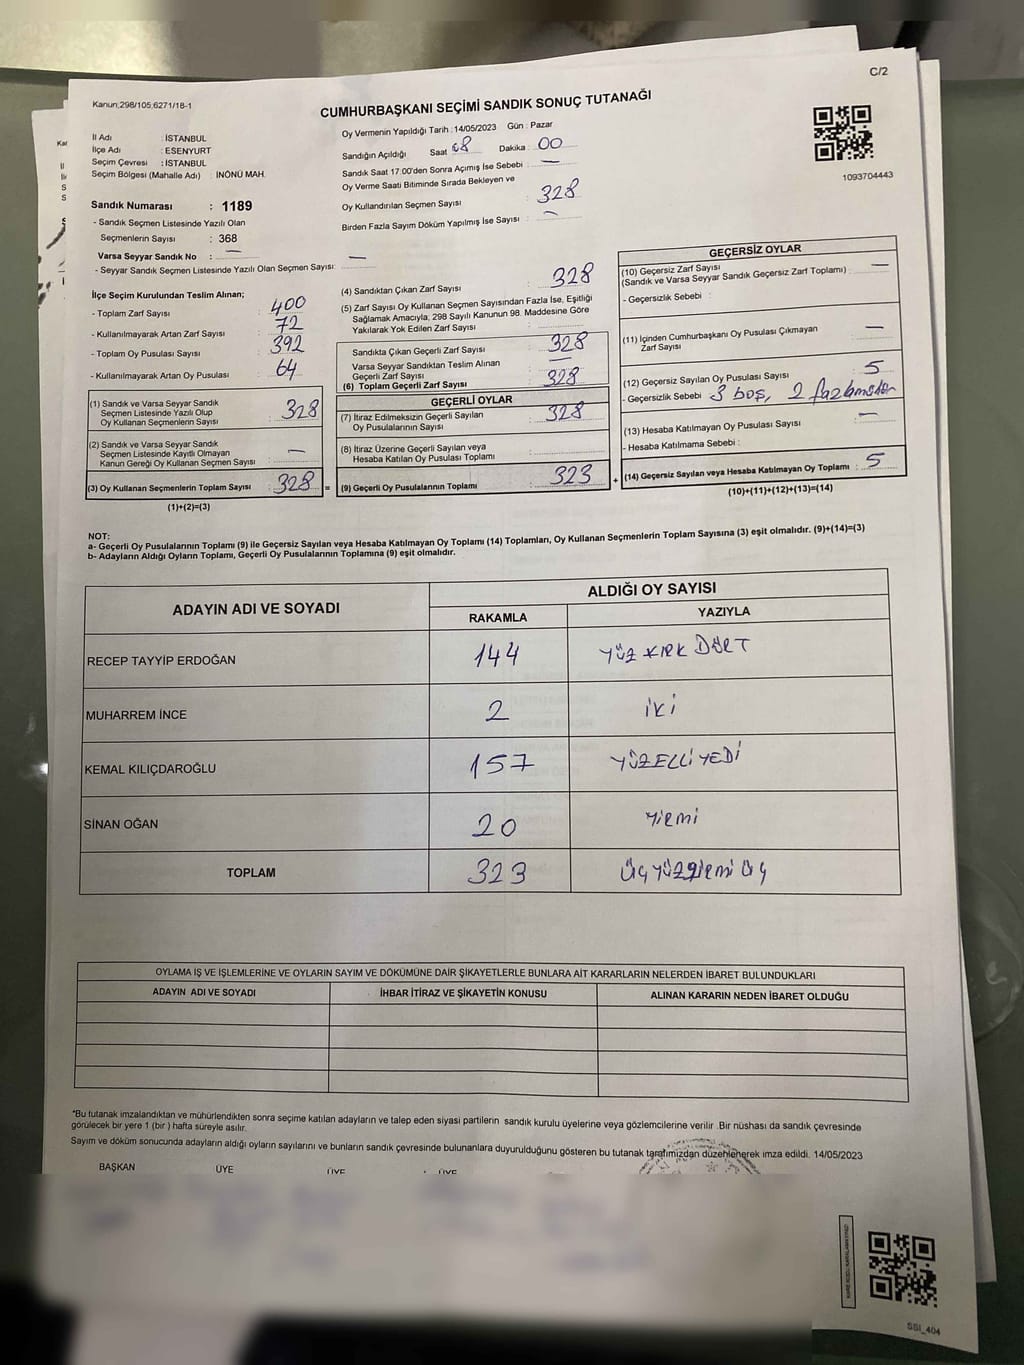 C/2
Kanun;298/105;6271/18-1
CUMHURBAŞKANI SEÇİMİ SANDIK SONUÇ TUTANAĞI
İl Adı : İSTANBUL
İlçe Adı : ESENYURT
Seçim Çevresi : İSTANBUL
Seçim Bölgesi (Mahalle Adı) : İNÖNÜ MAH.
Sandık Numarası : 1189
- Sandık Seçmen Listesinde Yazılı Olan
Seçmenlerin Sayısı : 368
Varsa Seyyar Sandık No : —
- Seyyar Sandık Seçmen Listesinde Yazılı Olan Seçmen Sayısı: —
Oy Vermenin Yapıldığı Tarih : 14/05/2023 Gün : Pazar
Sandığın Açıldığı Saat 08 Dakika : 00
Sandık Saat 17:00'den Sonra Açımış İse Sebebi : —
Oy Verme Saati Bitiminde Sırada Bekleyen ve
Oy Kullandırılan Seçmen Sayısı : 328
Birden Fazla Sayım Döküm Yapılmış İse Sayısı : —
1093704443
İlçe Seçim Kurulundan Teslim Alınan;
- Toplam Zarf Sayısı : 400
- Kullanılmayarak Artan Zarf Sayısı : 72
- Toplam Oy Pusulası Sayısı : 392
- Kullanılmayarak Artan Oy Pusulası : 64
(1) Sandık ve Varsa Seyyar Sandık
Seçmen Listesinde Yazılı Olup
Oy Kullanan Seçmenlerin Sayısı : 328
(2) Sandık ve Varsa Seyyar Sandık
Seçmen Listesinde Kayıtlı Olmayan
Kanun Gereği Oy Kullanan Seçmen Sayısı : —
(3) Oy Kullanan Seçmenlerin Toplam Sayısı : 328 =
(1)+(2)=(3)
(4) Sandıktan Çıkan Zarf Sayısı : 328
(5) Zarf Sayısı Oy Kullanan Seçmen Sayısından Fazla İse, Eşitliği
Sağlamak Amacıyla; 298 Sayılı Kanunun 98. Maddesine Göre
Yakılarak Yok Edilen Zarf Sayısı :
Sandıkta Çıkan Geçerli Zarf Sayısı : 328
Varsa Seyyar Sandıktan Teslim Alınan
Geçerli Zarf Sayısı : —
(6) Toplam Geçerli Zarf Sayısı : 328
GEÇERLİ OYLAR
(7) İtiraz Edilmeksizin Geçerli Sayılan
Oy Pusulalarının Sayısı : 328
(8) İtiraz Üzerine Geçerli Sayılan veya
Hesaba Katılan Oy Pusulası Toplamı :
(9) Geçerli Oy Pusulalarının Toplamı : 323 +
GEÇERSİZ OYLAR
(10) Geçersiz Zarf Sayısı
(Sandık ve Varsa Seyyar Sandık Geçersiz Zarf Toplamı) : —
- Geçersizlik Sebebi :
(11) İçinden Cumhurbaşkanı Oy Pusulası Çıkmayan
Zarf Sayısı : —
(12) Geçersiz Sayılan Oy Pusulası Sayısı : 5
- Geçersizlik Sebebi : 3 boş, 2
(13) Hesaba Katılmayan Oy Pusulası Sayısı : —
- Hesaba Katılmama Sebebi :
(14) Geçersiz Sayılan veya Hesaba Katılmayan Oy Toplamı : 5
(10)+(11)+(12)+(13)=(14)
NOT:
a- Geçerli Oy Pusulalarının Toplamı (9) ile Geçersiz Sayılan veya Hesaba Katılmayan Oy Toplamı (14) Toplamları, Oy Kullanan Seçmenlerin Toplam Sayısına (3) eşit olmalıdır. (9)+(14)=(3)
b- Adayların Aldığı Oyların Toplamı, Geçerli Oy Pusulalarının Toplamına (9) eşit olmalıdır.
ADAYIN ADI VE SOYADI ALDIĞI OY SAYISI
RAKAMLA YAZIYLA
RECEP TAYYİP ERDOĞAN 144 YÜZ KIRK DÖRT
MUHARREM İNCE 2 İKİ
KEMAL KILIÇDAROĞLU 157 YÜZELLİ YEDİ
SİNAN OĞAN 20 YİRMİ
TOPLAM 323 ÜÇ YÜZ YİRMİ ÜÇ
OYLAMA İŞ VE İŞLEMLERİNE VE OYLARIN SAYIM VE DÖKÜMÜNE DAİR ŞİKAYETLERLE BUNLARA AİT KARARLARIN NELERDEN İBARET BULUNDUKLARI
ADAYIN ADI VE SOYADI İHBAR İTİRAZ VE ŞİKAYETİN KONUSU ALINAN KARARIN NEDEN İBARET OLDUĞU
*Bu tutanak imzalandıktan ve mühürlendikten sonra seçime katılan adayların ve talep eden siyasi partilerin sandık kurulu üyelerine veya gözlemcilerine verilir .Bir nüshası da sandık çevresinde
görülecek bir yere 1 (bir ) hafta süreyle asılır.
Sayım ve döküm sonucunda adayların aldığı oyların sayılarını ve bunların sandık çevresinde bulunanlara duyurulduğunu gösteren bu tutanak tarafımızdan düzenlenerek imza edildi. 14/05/2023
BAŞKAN ÜYE ÜYE ÜYE
SSI_404